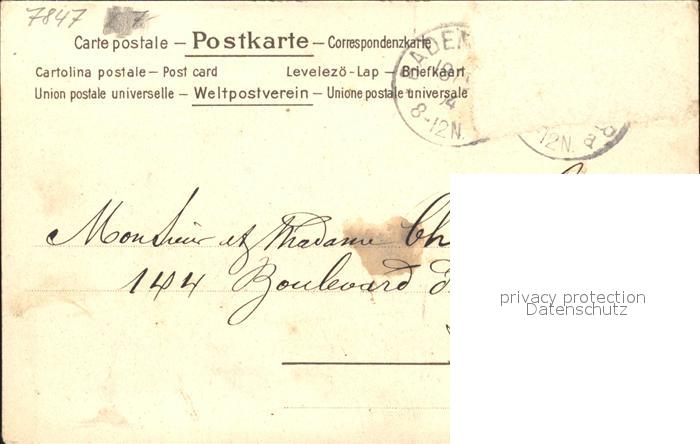 7847
Carte postale – Postkarte – Correspondenzkarte
Cartolina postale – Post card Levelezö-Lap – Briefkaart
Union postale universelle – Weltpostverein – Unione postale universale
BADEN
8-12N.
12N. a
Monsieur et Madame Ch
144 Boulevard d
privacy protection
Datenschutz